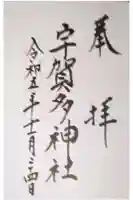 奉拝
宇賀多神社
令和五年十二月二四日